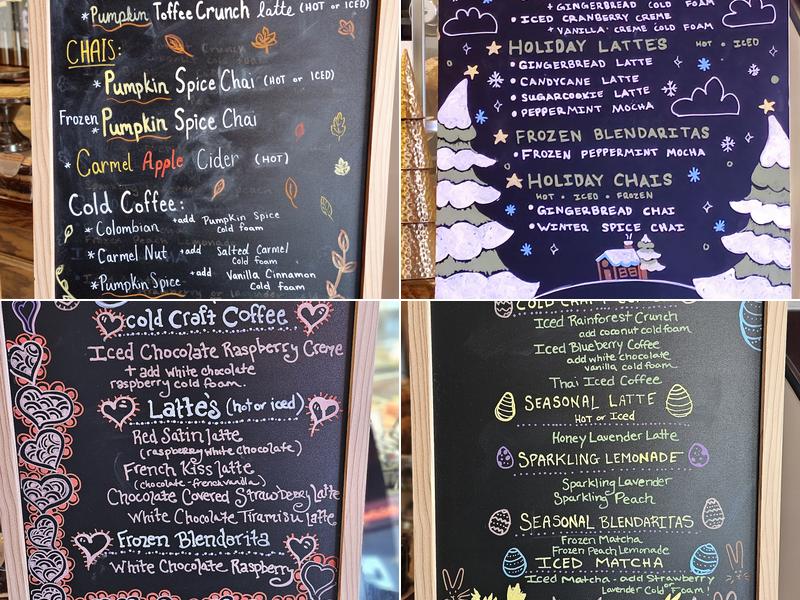 *Pumpkin Toffee Crunch latte (HOT or ICED)
CHAIS:
*Pumpkin Spice Chai (HOT or ICED)
Frozen *Pumpkin Spice Chai
*Carmel Apple Cider (HOT)
Cold Coffee:
*Colombian +add Pumpkin Spice
cold foam
*Carmel Nut +add Salted Carmel
Cold foam
*Pumpkin Spice +add Vanilla Cinnamon
Cold foam
+ GINGERBREAD COLD FOAM
• ICED CRANBERRY CREME
+ VANILLA CREME COLD FOAM
HOLIDAY LATTES HOT • ICED
• GINGERBREAD LATTE
• CANDYCANE LATTE
• SUGARCOOKIE LATTE
• PEPPERMINT MOCHA
FROZEN BLENDARITAS
• FROZEN PEPPERMINT MOCHA
HOLIDAY CHAIS
HOT • ICED • FROZEN
• GINGERBREAD CHAI
• WINTER SPICE CHAI
Cold Craft Coffee
Iced Chocolate Raspberry Creme
+ add white chocolate
raspberry cold foam.
Latte's (hot or iced)
Red Satin latte
(raspberry white chocolate)
French Kiss latte
(chocolate-french vanilla)
Chocolate Covered Strawberry Latte
White Chocolate Tiramisu Latte
Frozen Blenderita
White Chocolate Raspberry
COLD CRAFT
Iced Rainforest Crunch
add coconut cold foam
Iced Blueberry Coffee
add white chocolate
vanilla cold foam
Thai Iced Coffee
SEASONAL LATTE
HOT or Iced
Honey Lavender Latte
SPARKLING LEMONADE
Sparkling Lavender
Sparkling Peach
SEASONAL BLENDARITAS
Frozen Matcha
Frozen Peach Lemonade
ICED MATCHA
Iced Matcha - add Strawberry
or
Lavender Cold Foam!